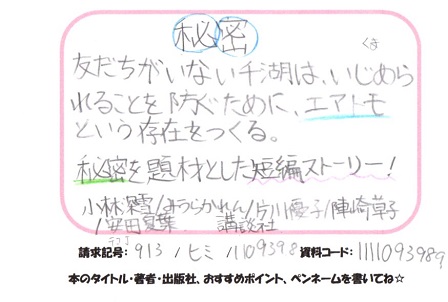 秘密
くき
友だちがいない千湖は、いじめら
れることを防ぐために、エアトモ
という存在をつくる。
秘密を題材とした短編ストーリー!
小林深雪/みうらかれん/片川優子/陣崎草子
/安田夏菜 講談社
請求記号: 913 /ヒミ/1109398 資料コード: 1111093989
本のタイトル・著者・出版社、おすすめポイント、ペンネームを書いてね☆